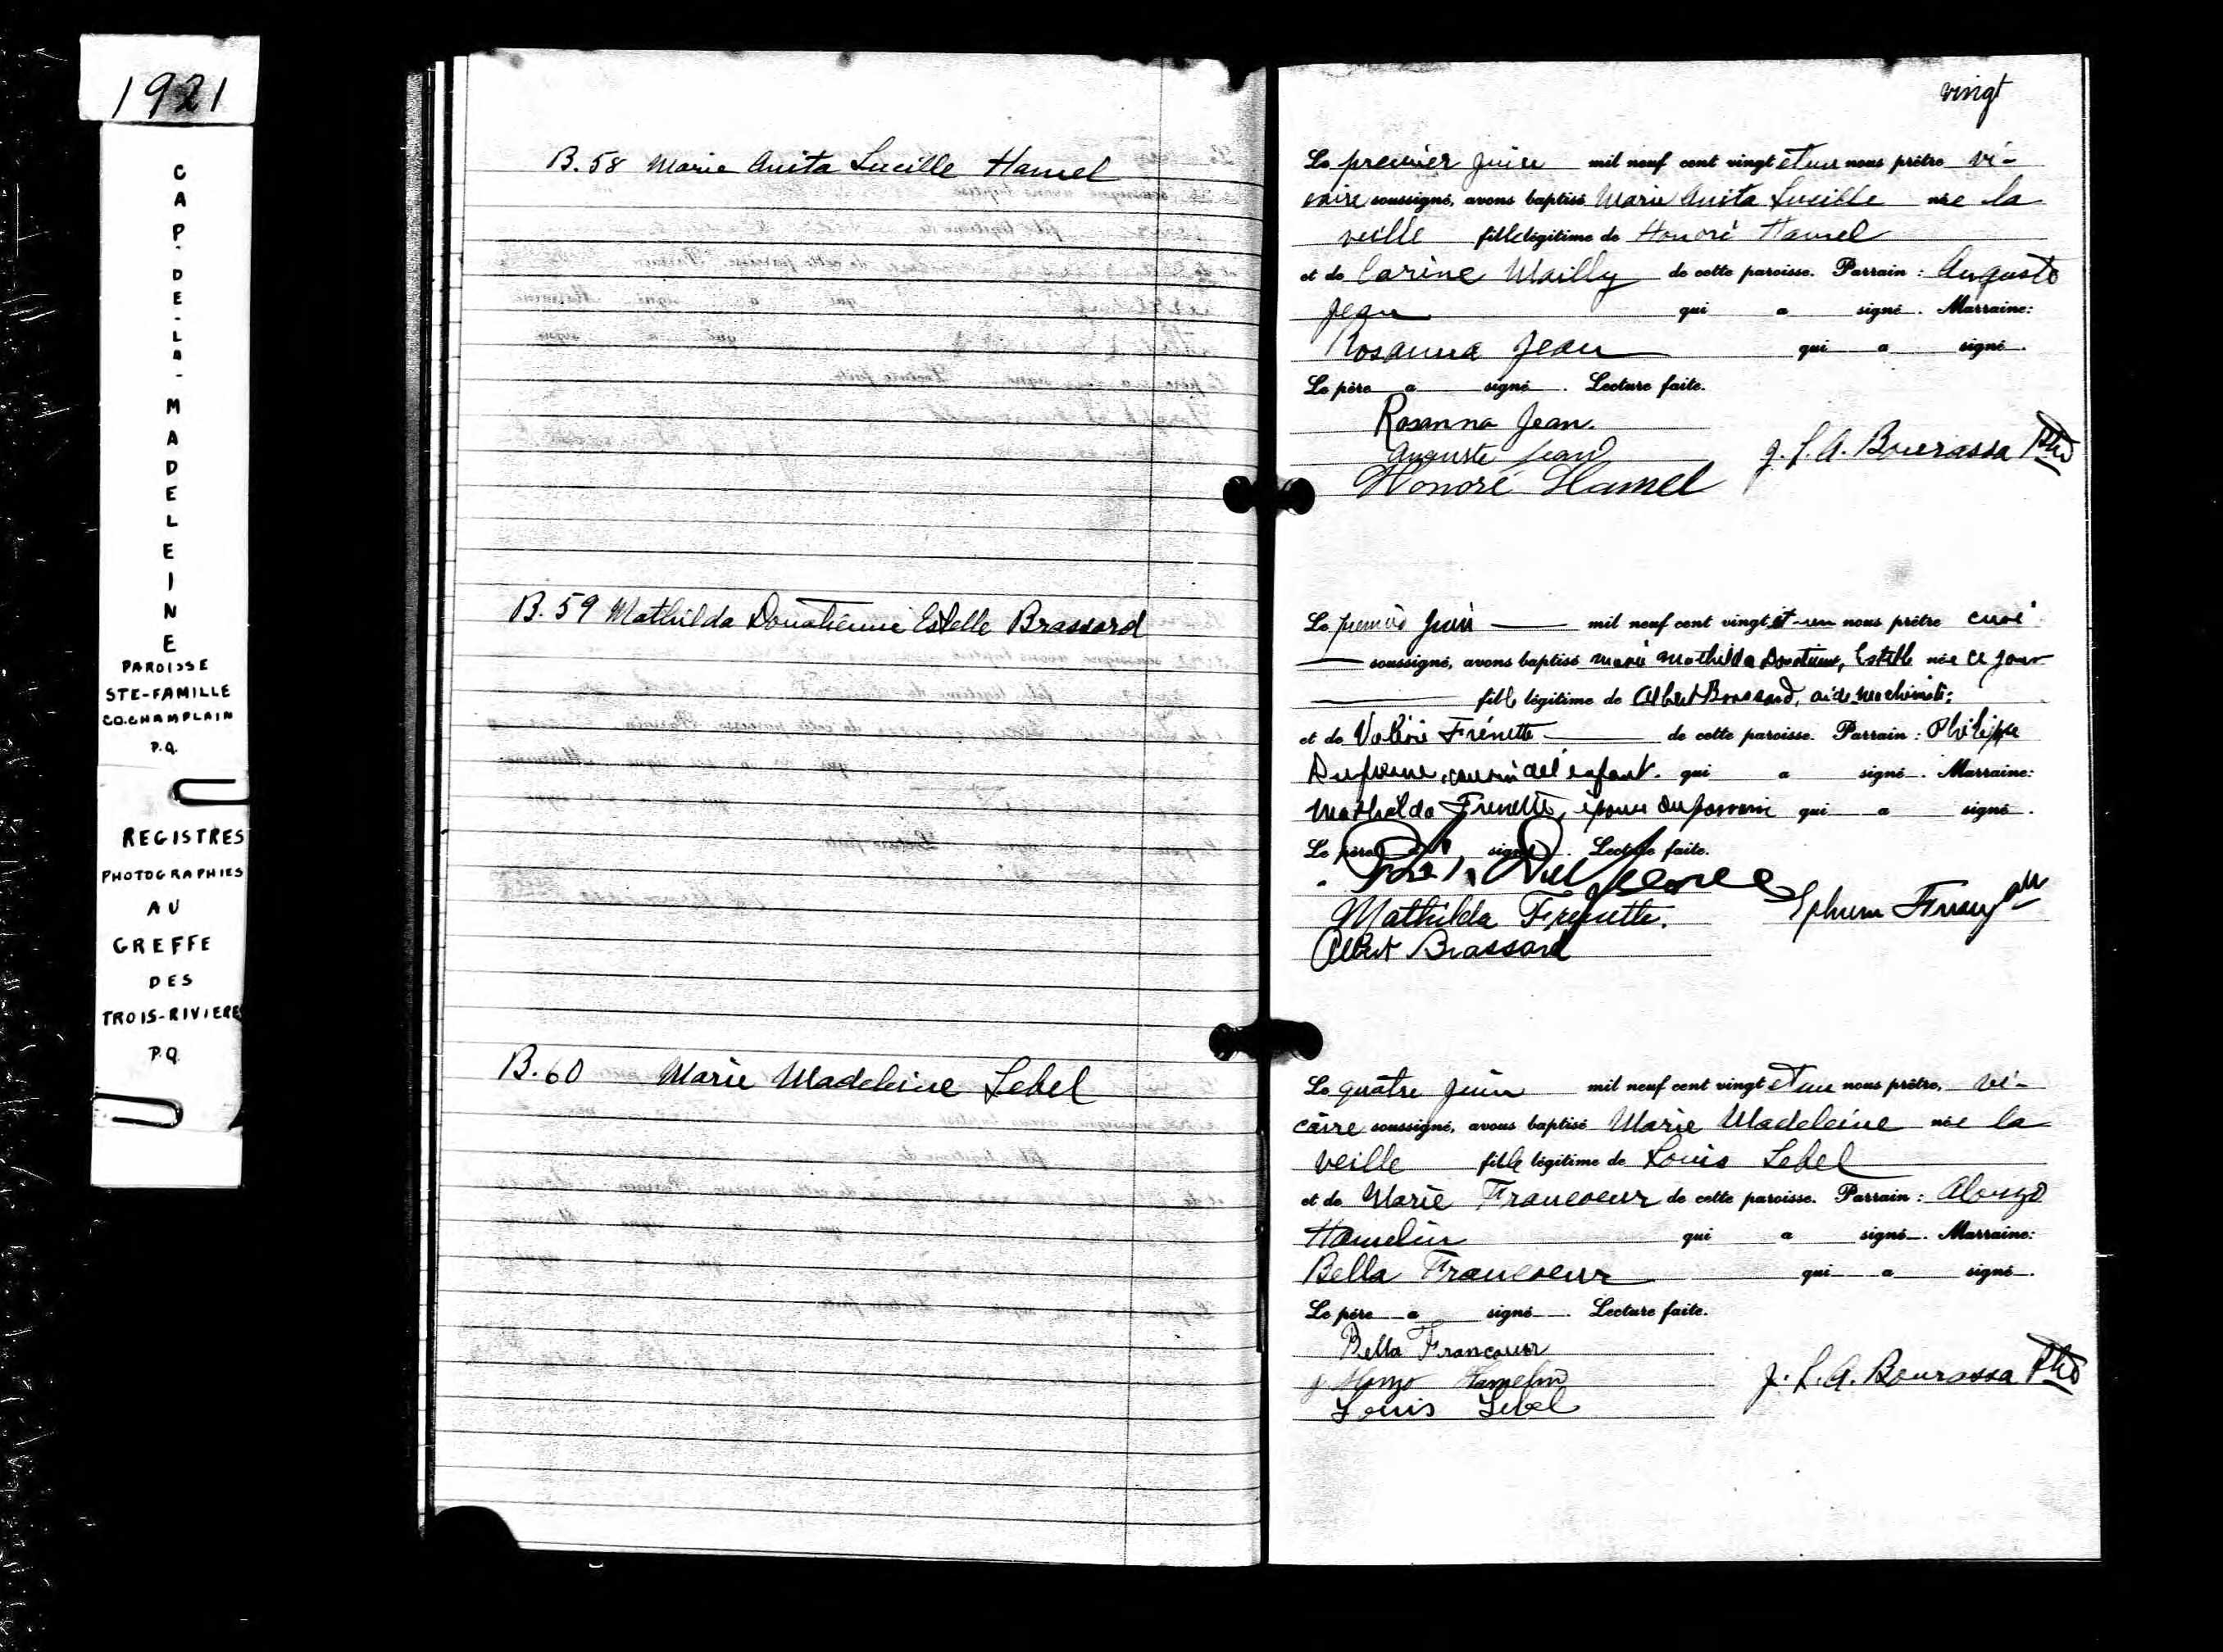 1921
CAP-DE-LA-MADELEINE
PAROISSE
STE-FAMILLE
CO. CHAMPLAIN
P.Q.
REGISTRES
PHOTOGRAPHIES
AU
GREFFE
DES
TROIS-RIVIERES
P.Q.
B. 58 Marie Anita Lucille Hamel
B. 59 Mathilda Donatienne Estelle Brassard
B. 60 Marie Madeleine Lebel
vingt
Le premier juin mil neuf cent vingt et un nous prêtre vi-
caire soussigné, avons baptisé Marie Anita Lucille née la
veille fille légitime de Honoré Hamel
et de Carine Mailly de cette paroisse. Parrain : Auguste
Jean qui a signé. Marraine:
Rosanna Jean qui a signé.
Le père a signé. Lecture faite.
Rosanna Jean.
Auguste Jean
Honoré Hamel
J. L. A. Bourassa Ptre
Le premier juin mil neuf cent vingt et-un nous prêtre curé
soussigné, avons baptisé Marie Mathilda Donatienne, Estelle née ce jour
fille légitime de Albert Brassard, aide machiniste;
et de Valérie Frénette de cette paroisse. Parrain : Philippe
Dufresne, cousin de l'enfant. qui a signé. Marraine:
Mathilda Frenette, épouse du parrain qui a signé.
Le père a signé. Lecture faite.
Phil. Dufresne
Mathilda Frenette.
Albert Brassard
Le quatre juin mil neuf cent vingt et un nous prêtre, vi-
caire soussigné, avons baptisé Marie Madeleine née la
veille fille légitime de Louis Lebel
et de Marie Francoeur de cette paroisse. Parrain : Alonzo
Hamelin qui a signé. Marraine:
Bella Francoeur qui a signé.
Le père a signé. Lecture faite.
Bella Francoeur
J. Alonzo Hamelin
Louis Lebel
J. L. A. Bourassa Ptre